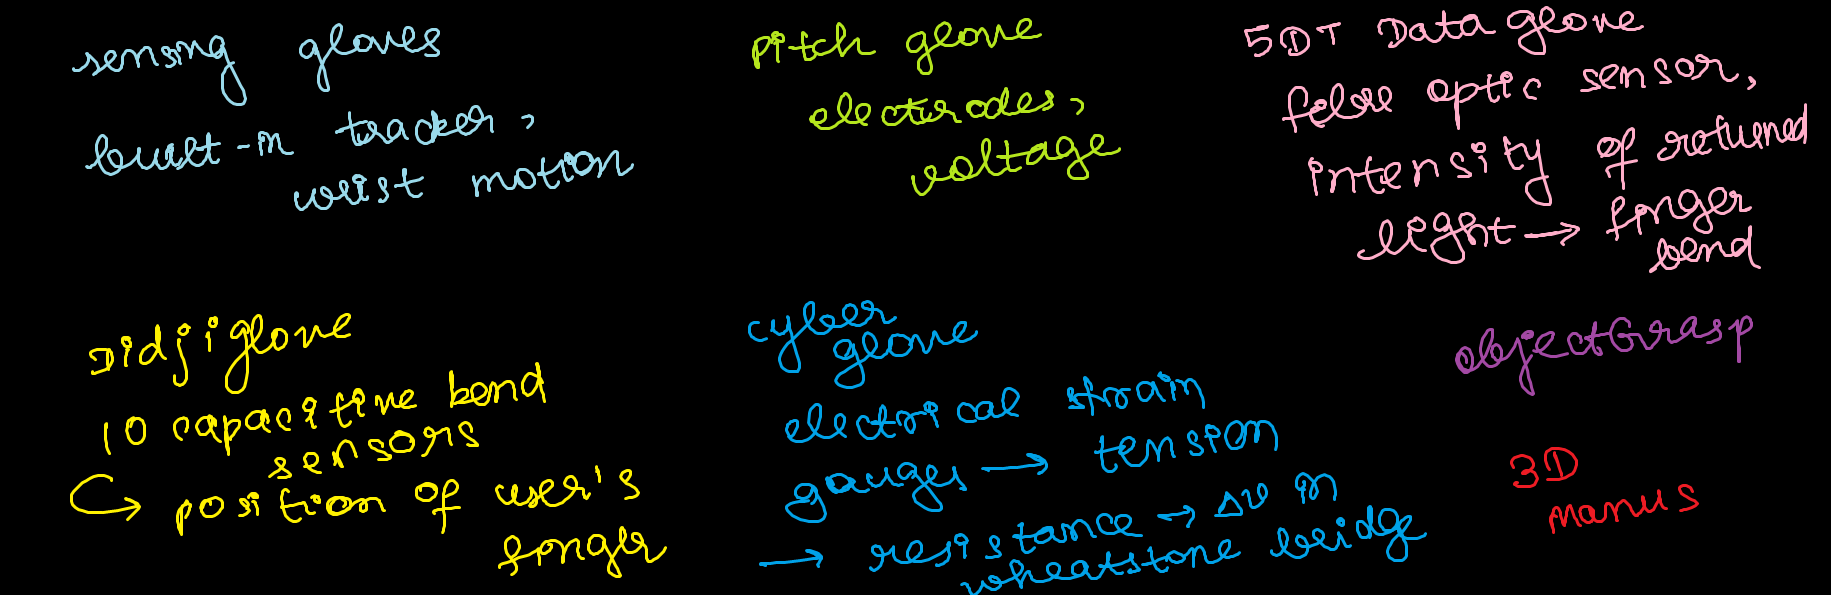 sensing gloves
built-in tracker,
wrist motion
Pitch glove
electrodes,
voltage
5DT Data glove
fibre optic sensor,
intensity of returned
light → finger
bend
Didjiglove
10 capacitive bend
sensors
↪ position of user's
finger
cyber
glove
electrical strain
gauges → tension
→ resistance → Δv in
wheatstone bridge
objectGrasp
3D
Manus